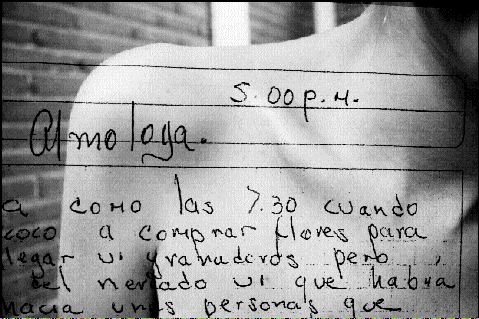 5.00 p.m.
Atmoloya.
a como las 7.30 cuando
coco a comprar flores para
llegar vi granaderos pero
el mercado vi que había
hacia unas personas que